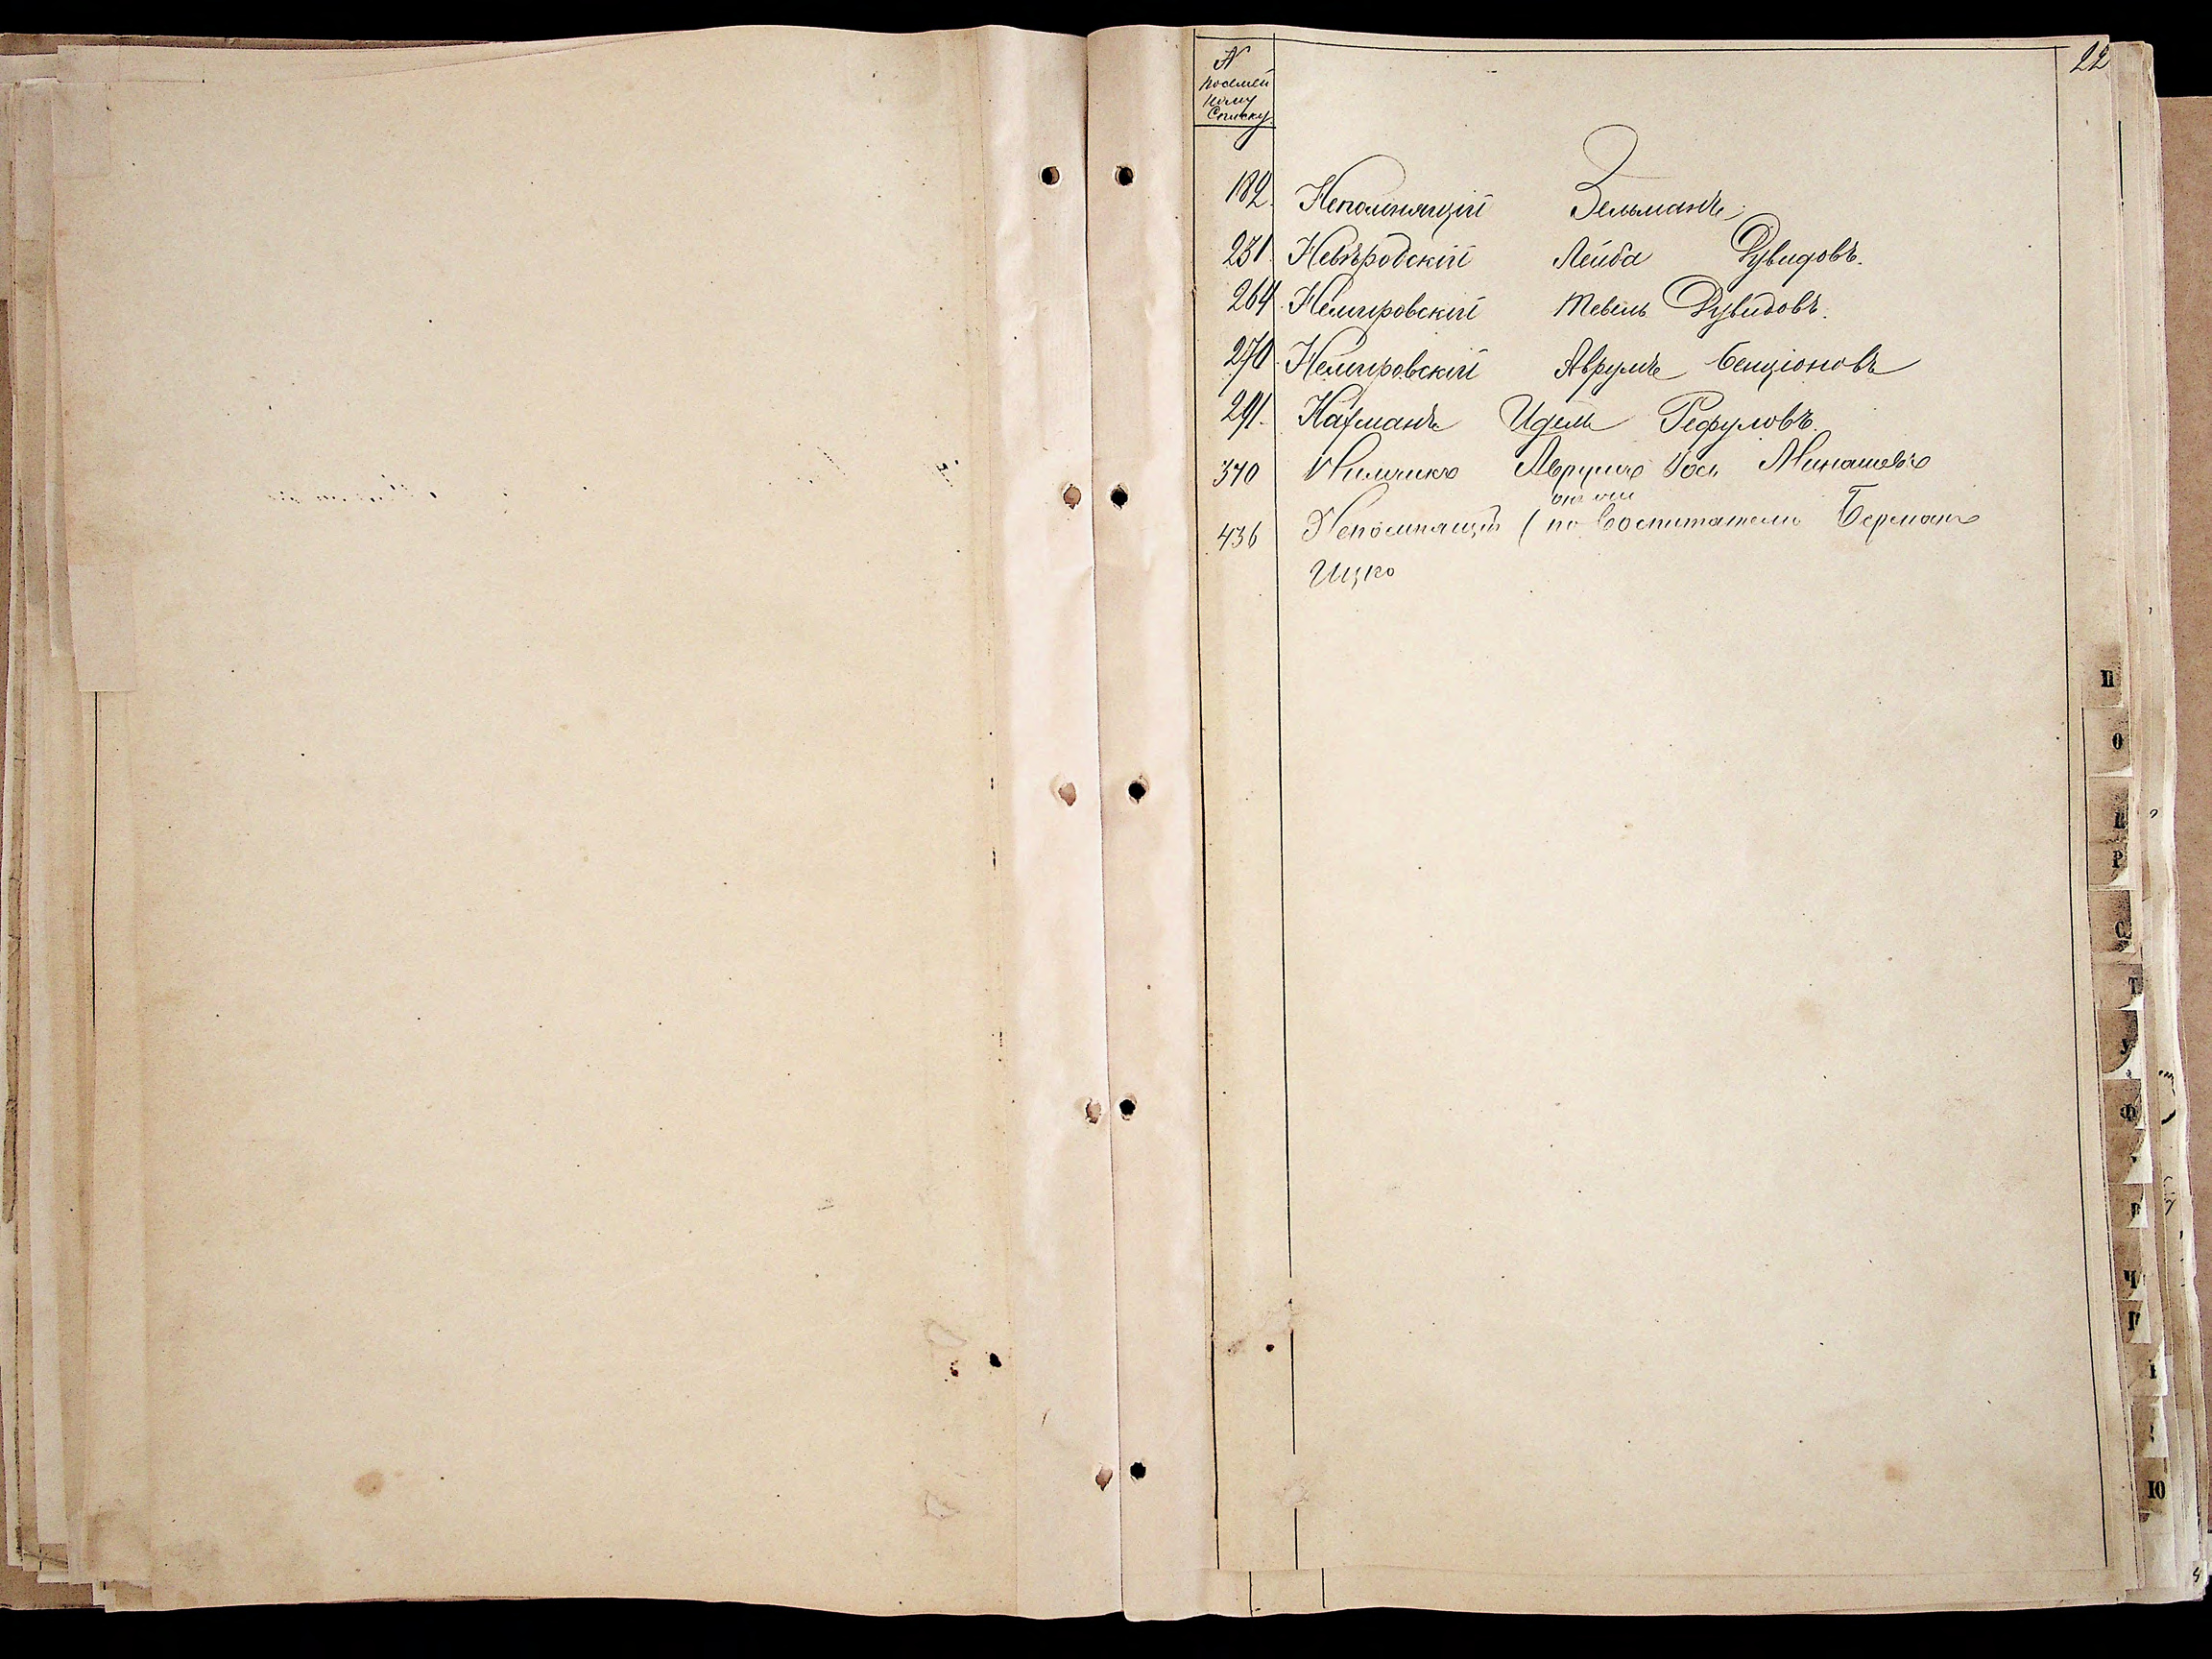 22
№
посемей
ному
Списку
182. Непомнящій Зельманъ
231. Невѣродскій Лейба Дувидовъ.
264. Немировскій Тевель Дувидовъ.
270. Немировскій Аврумъ Бенціоновъ
291. Нахманъ Идель Рефуловъ.
370 Нимчикъ Аврумъ Іось Минашевъ
436 Непомнящій ( по воспитатели Берманъ
Ицко
П
О
Р
С
Т
У
Ф
Ч
Ю